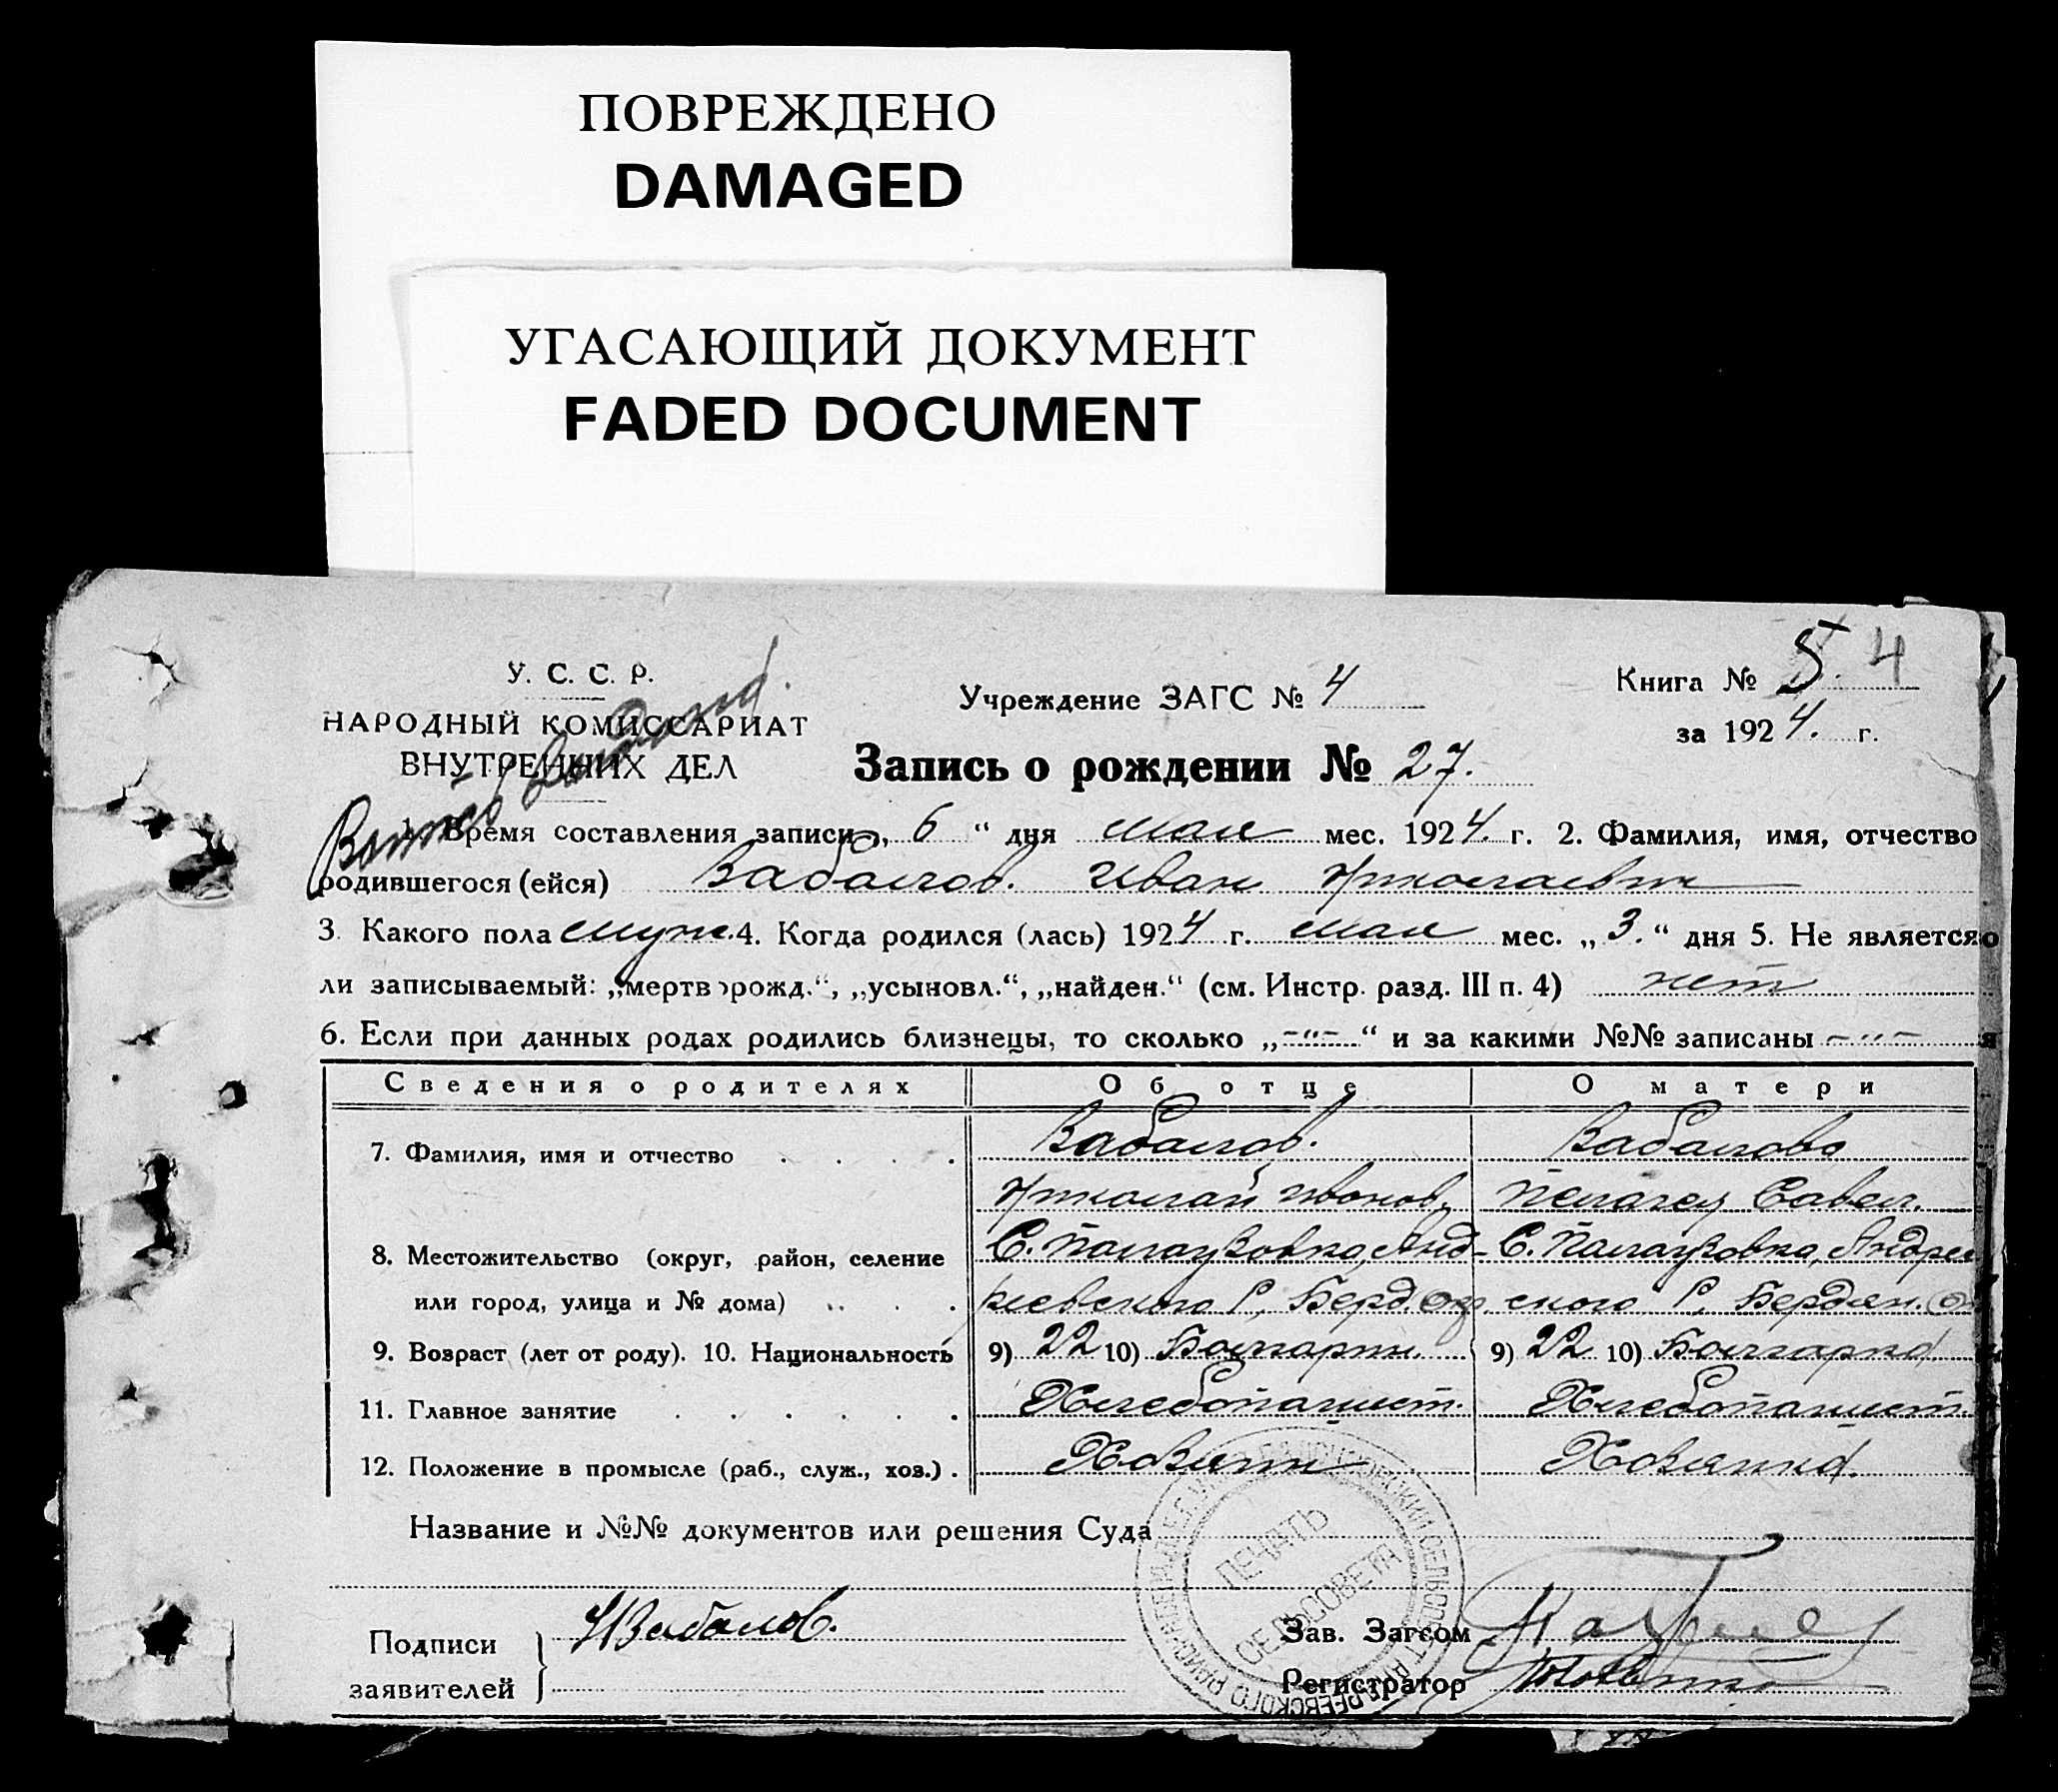 ПОВРЕЖДЕНО
DAMAGED
УГАСАЮЩИЙ ДОКУМЕНТ
FADED DOCUMENT
У. С. С. Р.
НАРОДНЫЙ КОМИССАРИАТ
ВНУТРЕННИХ ДЕЛ
Учреждение ЗАГС № 4
Книга № 5. 4
за 1924. г.
Запись о рождении № 27.
1. Время составления записи „ 6 “ дня мая мес. 1924. г. 2. Фамилия, имя, отчество
родившегося (ейся) Забалов. Иван Николаевич
3. Какого пола муж. 4. Когда родился (лась) 1924 г. мая мес. „ 3. “ дня 5. Не является
ли записываемый: „мертворожд.“, „усыновл.“, „найден.“ (см. Инстр. разд. III п. 4) нет
6. Если при данных родах родились близнецы, то сколько „ -"- “ и за какими №№ записаны -"-
Сведения о родителях Об отце О матери
7. Фамилия, имя и отчество . . . . Забалов. Забалово
Николай Иванов. Пелагея Савел.
8. Местожительство (округ, район, селение С. Палаузовка, Анд- С. Палаузовка, Андреев
или город, улица и № дома) . . . реевского Р, Берд. Окр ского Р, Бердян. О
9. Возраст (лет от роду). 10. Национальность 9) 22 10) Болгарин. 9) 22 10) Болгарка
11. Главное занятие . . . . . . Хлебопашест. Хлебопашест.
12. Положение в промысле (раб., служ., хоз.) . Хозяин Хозяйка.
Название и №№ документов или решения Суда
ПЕЧАТЬ
СЕЛЬСОВЕТА
Подписи
заявителей
НЗабалов.
Зав. Загсом
Регистратор